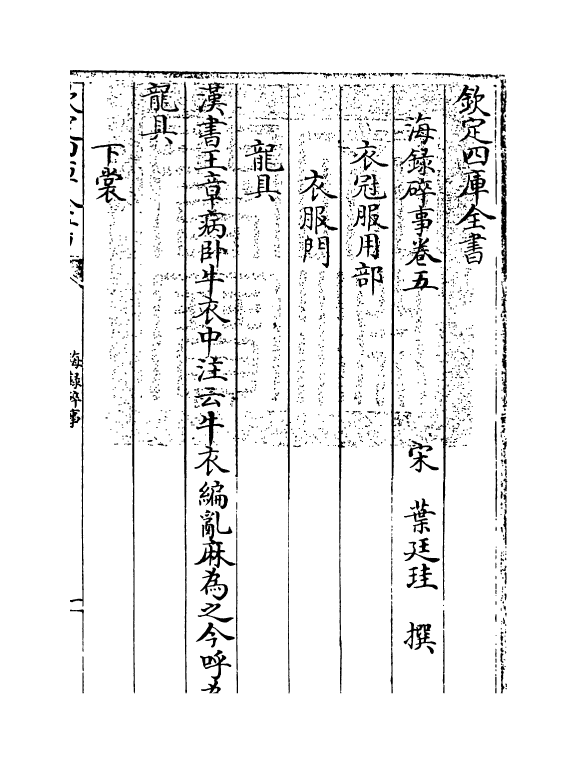 欽定四庫全書
海録碎事卷五　宋　葉廷珪　撰
衣冠服用部
衣服門
龍具
漢書王章病卧牛衣中注云牛衣編亂麻為之今呼為
龍具
下裳
海録碎事
一